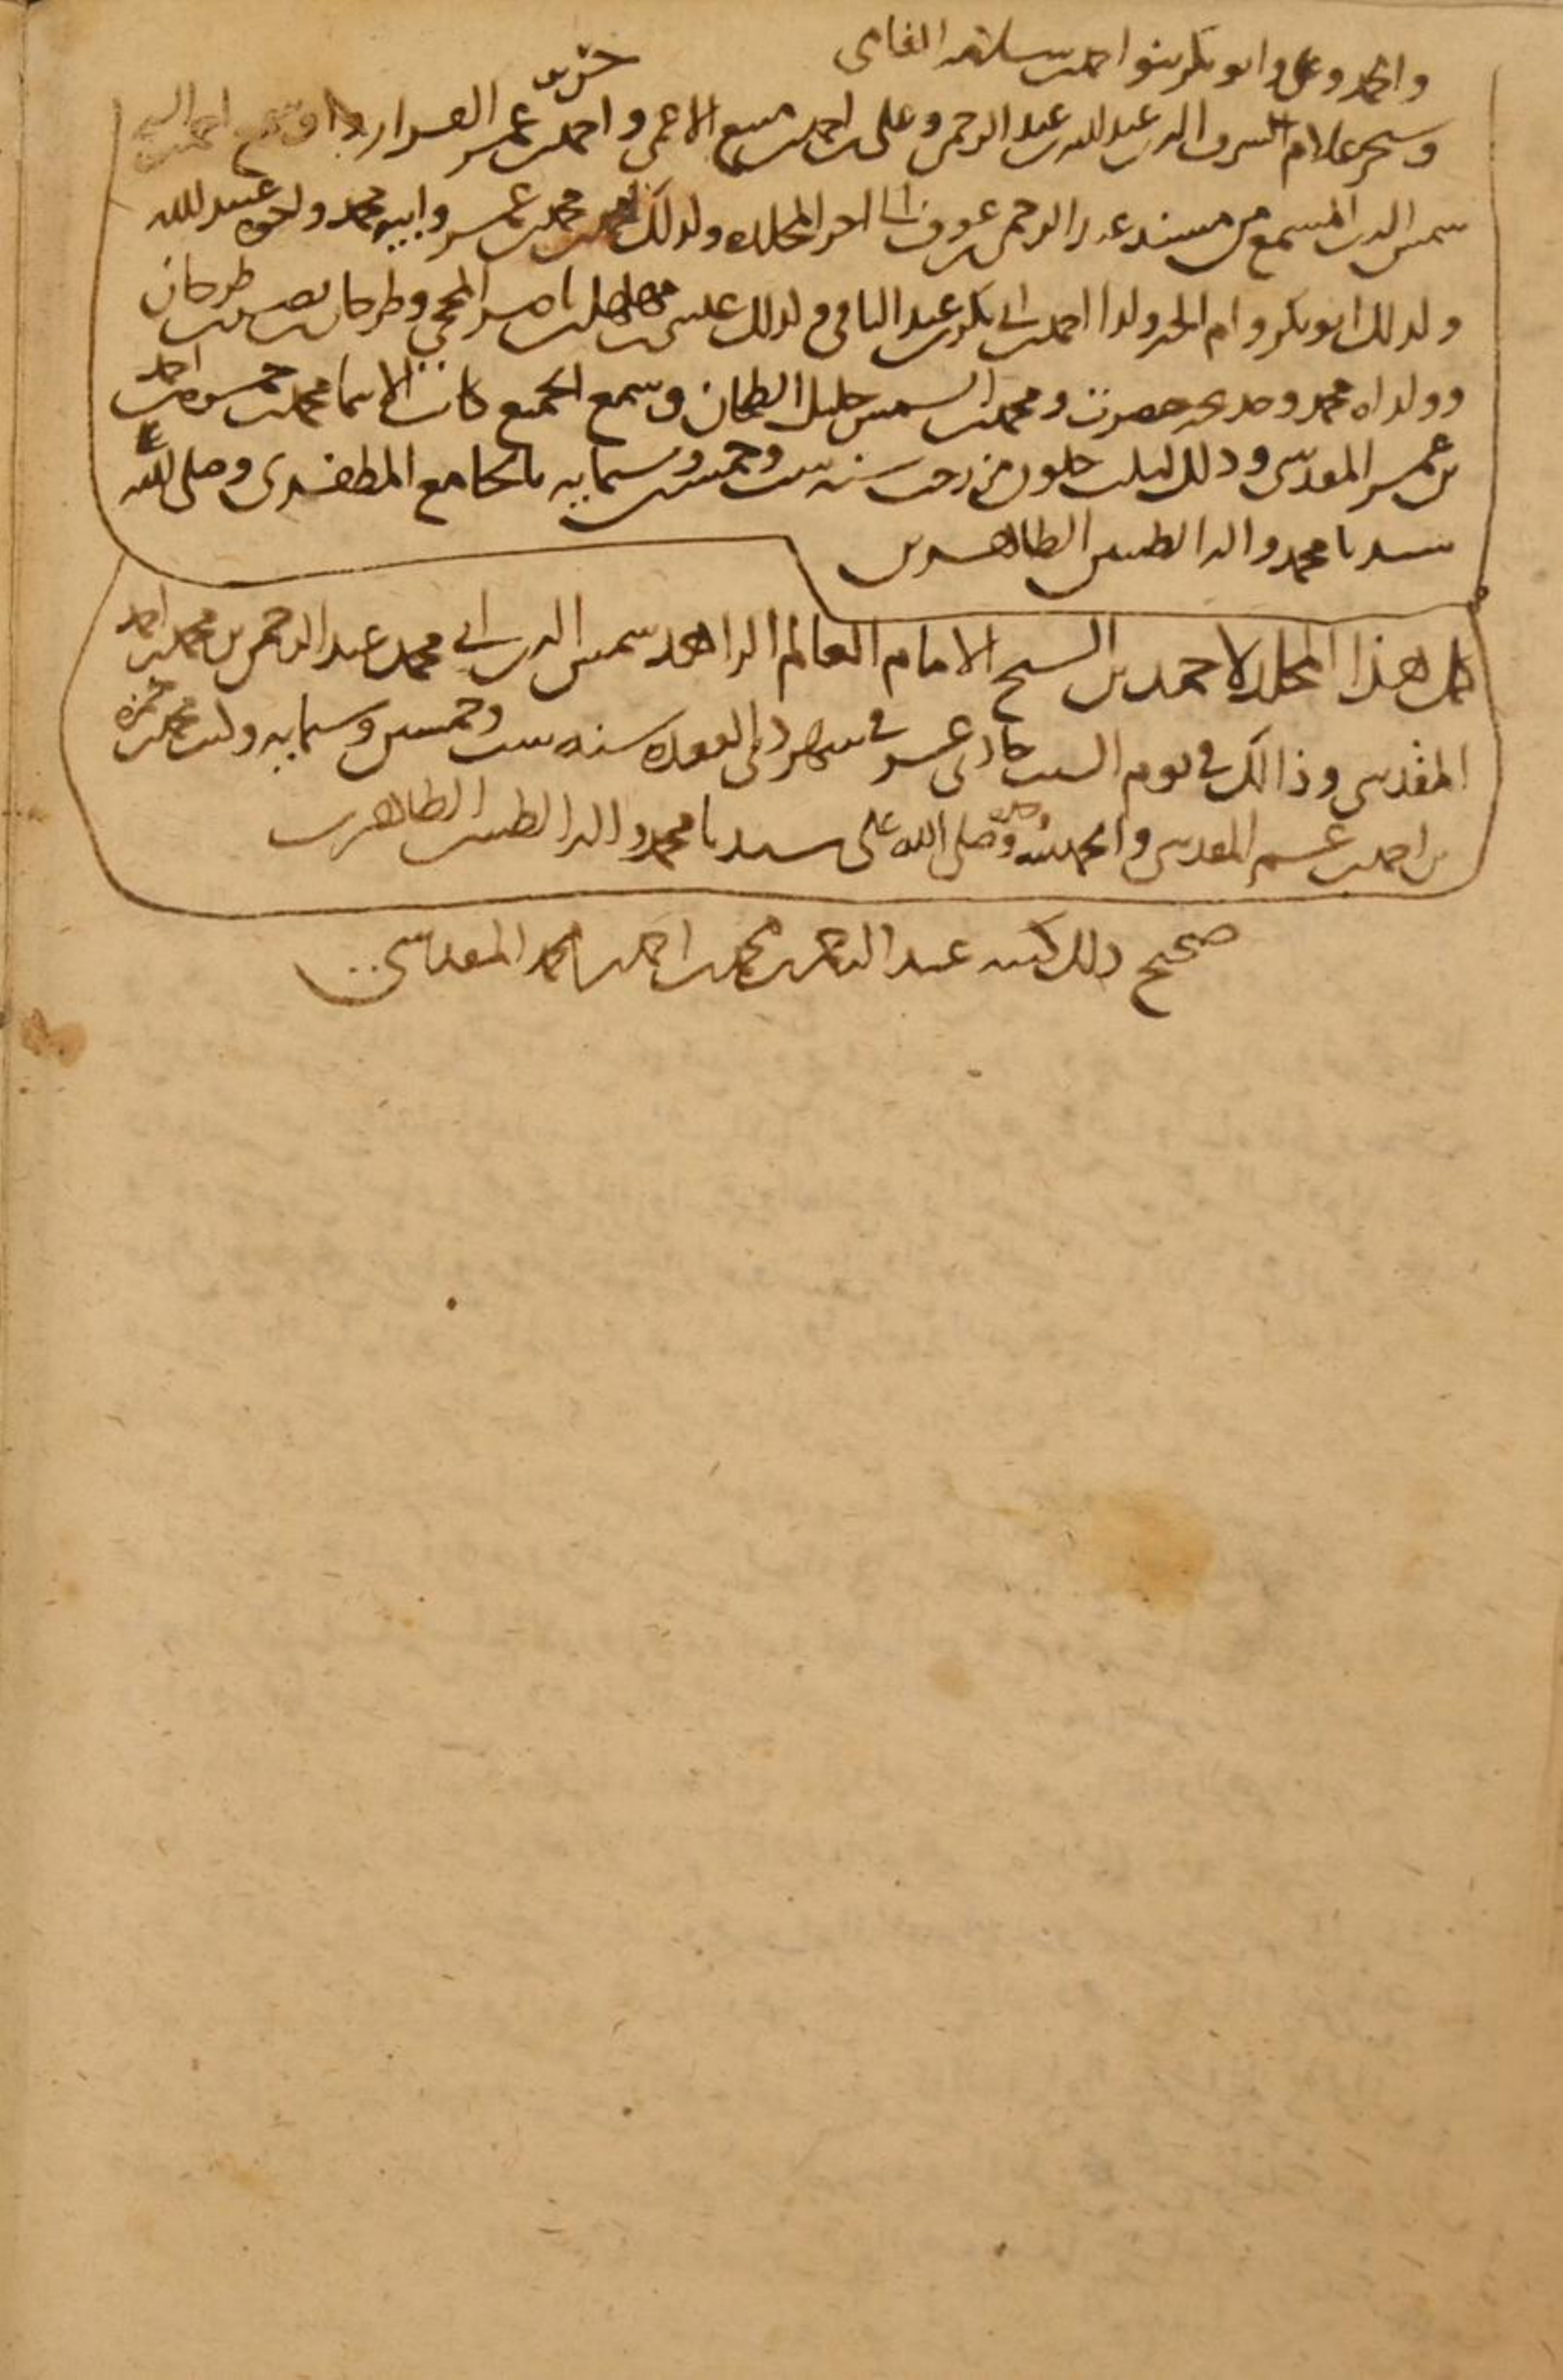 واحمد وعلي وابو بكر بنو احمد بن سلامة
وسنجر غلام الشرف الدين عبد الله بن عبد الرحمن وعلي بن احمد بن سبع الاعمى واحمد بن عمر الفرا
شمس الدين المسمع من مسند عبد الرحمن بن عوف الى اخر المجلد وكذلك محمد بن عمر وابيه محمد واخوه عبيد الله
وكذلك ابو بكر وام الخير ولدا احمد بن ابي بكر بن عبد الباقي وكذلك عيسى بن مهلهل بن ناصر وطرخان بن نصر بن طرخان
وولداه محمد وخديجة حضرت ومحمد بن الشمس خليل الطحان وسمع الجميع كاتب الاسما محمد بن حمزة بن احمد
بن عمر المقدسي وذلك لثلث خلون من رجب سنة ست وخمسين وستماية بالجامع المظفري وصلى الله على
سيدنا محمد واله الطيبين الطاهرين
كمل هذا المجلد لاحمد بن الشيخ الامام العالم الزاهد شمس الدين ابي محمد عبد الرحمن بن محمد بن احمد
المقدسي وذالك في يوم السبت حادي عشر في شهر ذي القعدة سنة ست وخمسين وستماية وكتب محمد بن حمزة
بن احمد بن عمر المقدسي والحمد لله وحده وصلى الله على سيدنا محمد واله الطيبين الطاهرين
صحيح ذلك كتبه عبد الرحمن بن محمد بن احمد بن محمد المقدسي